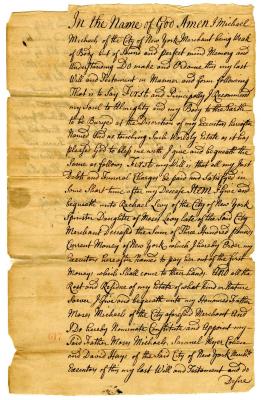 In the Name of God Amen I Michael
Michaels of the City of New York Merchant being Weak
of Body but of Sound and perfect mind Memory and
Understanding Do make and Ordaine this my last
Will and Testament in Manner and form following
That is to Say First and Principally I Recommend
my Soul to Almighty and my Body to the Earth
to be Buryed at the Direction of my Executors hereafter
Named And as touching Such Worldly Estate as it has
pleased God to bless me with I give and bequeath the
Same as follows First my Will is that all my Just
Debts and Funeral Charges be paid and Satisfied in
Some Short time after my Decease Item I give and
bequeath unto Rachael Levy of the City of New York
Spinster Daughter of Moses Levy late of the Said City
Merchant Deceased the Sume of Three Hundred pounds
Current Money of New York which I hereby Order my
Executors hereafter Named to pay her out of the first
Money which Shall come to their hands And all the
Rest and Residue of my Estate of what kind or Nature
Soever I give and bequeath unto my Honoured Father
Moses Michaels of the City aforesaid Merchant And
I Do hereby Nominate Constitute and Appoint my
Said Father Moses Michaels, Samuel Myer Cohen
and David Hays of the Said City of New York
Executors of this my last Will and Testament and do
Desire